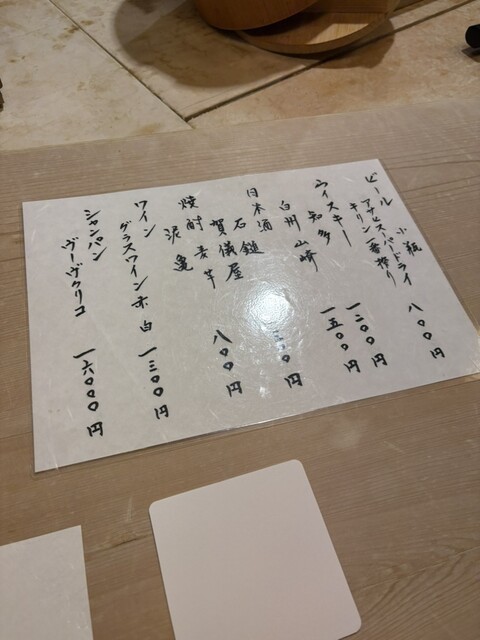 ビール 小瓶 八〇〇円
アサヒスーパードライ
キリン一番搾り
ウイスキー
知多 一二〇〇円
白州 山崎 一五〇〇円
日本酒
石鎚
賀儀屋
焼酎 麦 芋 八〇〇円
泥亀
ワイン
グラスワイン 赤 白 一三〇〇円
シャンパン
ヴーヴクリコ 一六〇〇〇円